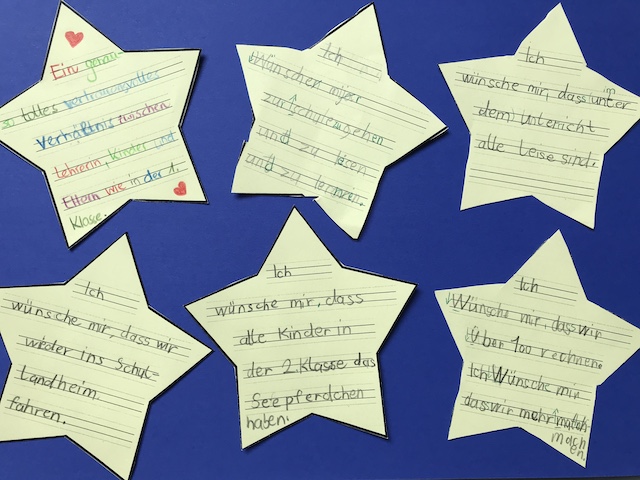 Ein genau
so tolles vertrauensvolles
Verhältnis zwischen
Lehrerin, Kinder und
Eltern wie in der 1.
Klasse.
Ich
Wünschen
zur Schule gehen
und zu lesen
und zu lernen.
Ich
wünsche mir, dass unter im
dem Unterricht
alle leise sind.
Ich
wünsche mir, dass wir
wieder ins Schul-
Landheim
fahren.
Ich
wünsche mir, dass
alle Kinder in
der 2. Klasse das
Seepferdchen
haben.
Ich
Wünsche mir, das wir
Über 100 rechnen.
Ich Wünsche mir
das wir mehr
mach
en.